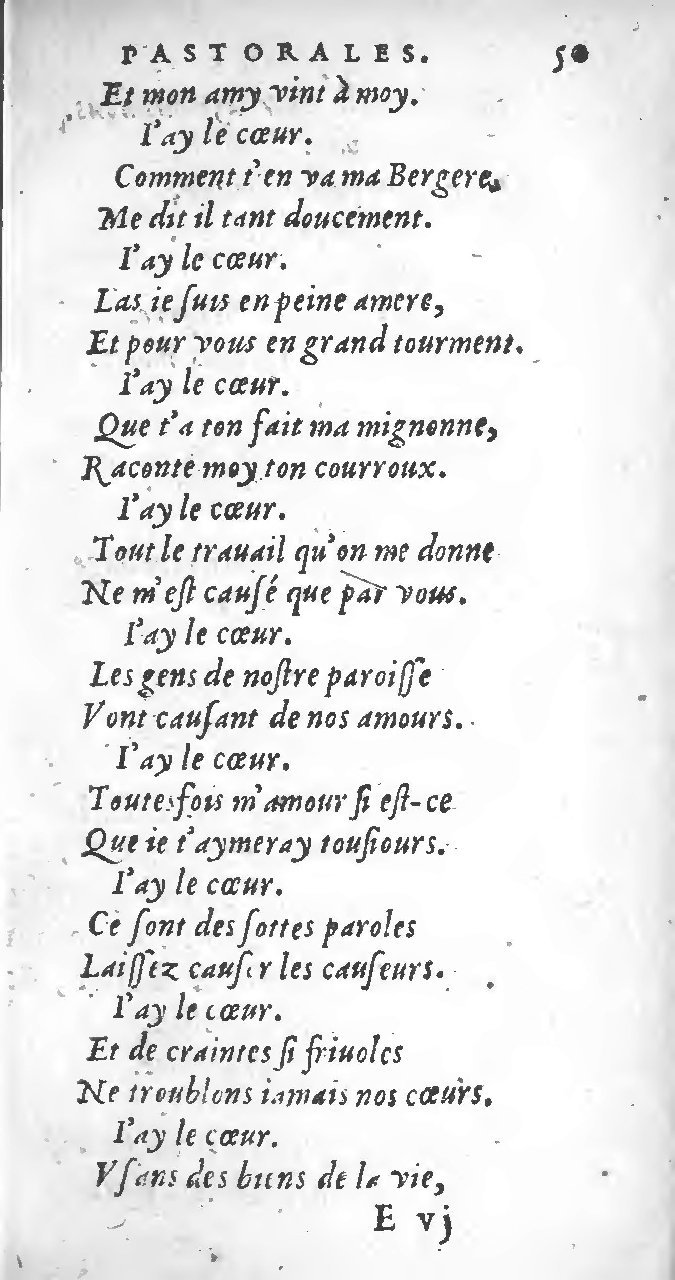 PASTORALES. 50
Et mon amy vint à moy.
I'ay le cœur.
Comment t'en va ma Bergere,
Me dit il tant doucement.
I'ay le cœur.
Las ie ſuis en peine amere,
Et pour vous en grand tourment.
I'ay le cœur.
Que t'a ton fait ma mignonne,
Raconte moy ton courroux.
I'ay le cœur.
Tout le trauail qu'on me donne
Ne m'eſt cauſé que par vous.
I'ay le cœur.
Les gens de noſtre paroiſſe
Vont cauſant de nos amours.
I'ay le cœur.
Toutesfois m'amour ſi eſt-ce
Que ie t'aymeray touſiours.
I'ay le cœur.
Ce ſont des ſottes paroles
Laiſſez cauſer les cauſeurs.
I'ay le cœur.
Et de craintes ſi friuoles
Ne troublons iamais nos cœurs.
I'ay le cœur.
Vſans des biens de la vie,
E vj